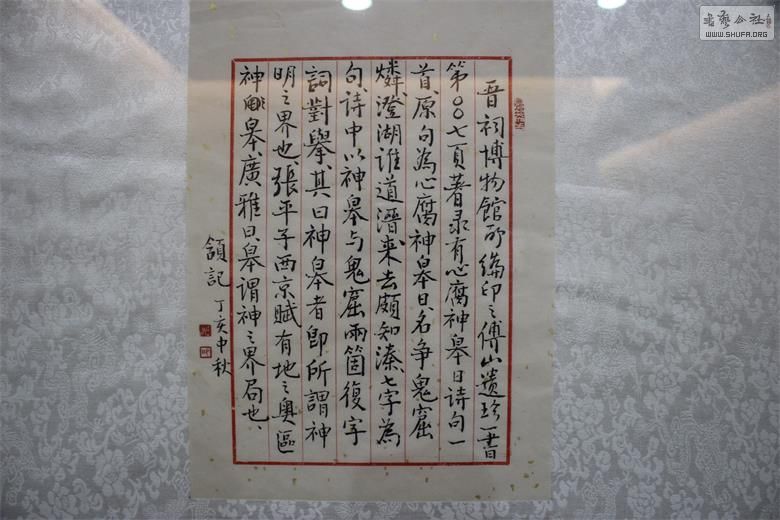 晋祠博物館所編印之傅山遺珍一書
第〇〇七頁著录有心腐神皋日诗句一
首、原句為心腐神皋日、名争鬼窟
燐、澄湖谁道潛、来去頗知溱、七字為
句、诗中以神皋与鬼窟兩箇復字
詞對舉、其曰神皋者即所謂神
明之界也、張平子西京賦有地之奥區
神皋、廣雅曰、皋謂神之界局也、
頷記 丁亥中秋
書藝公社
WWW.SHUFA.ORG